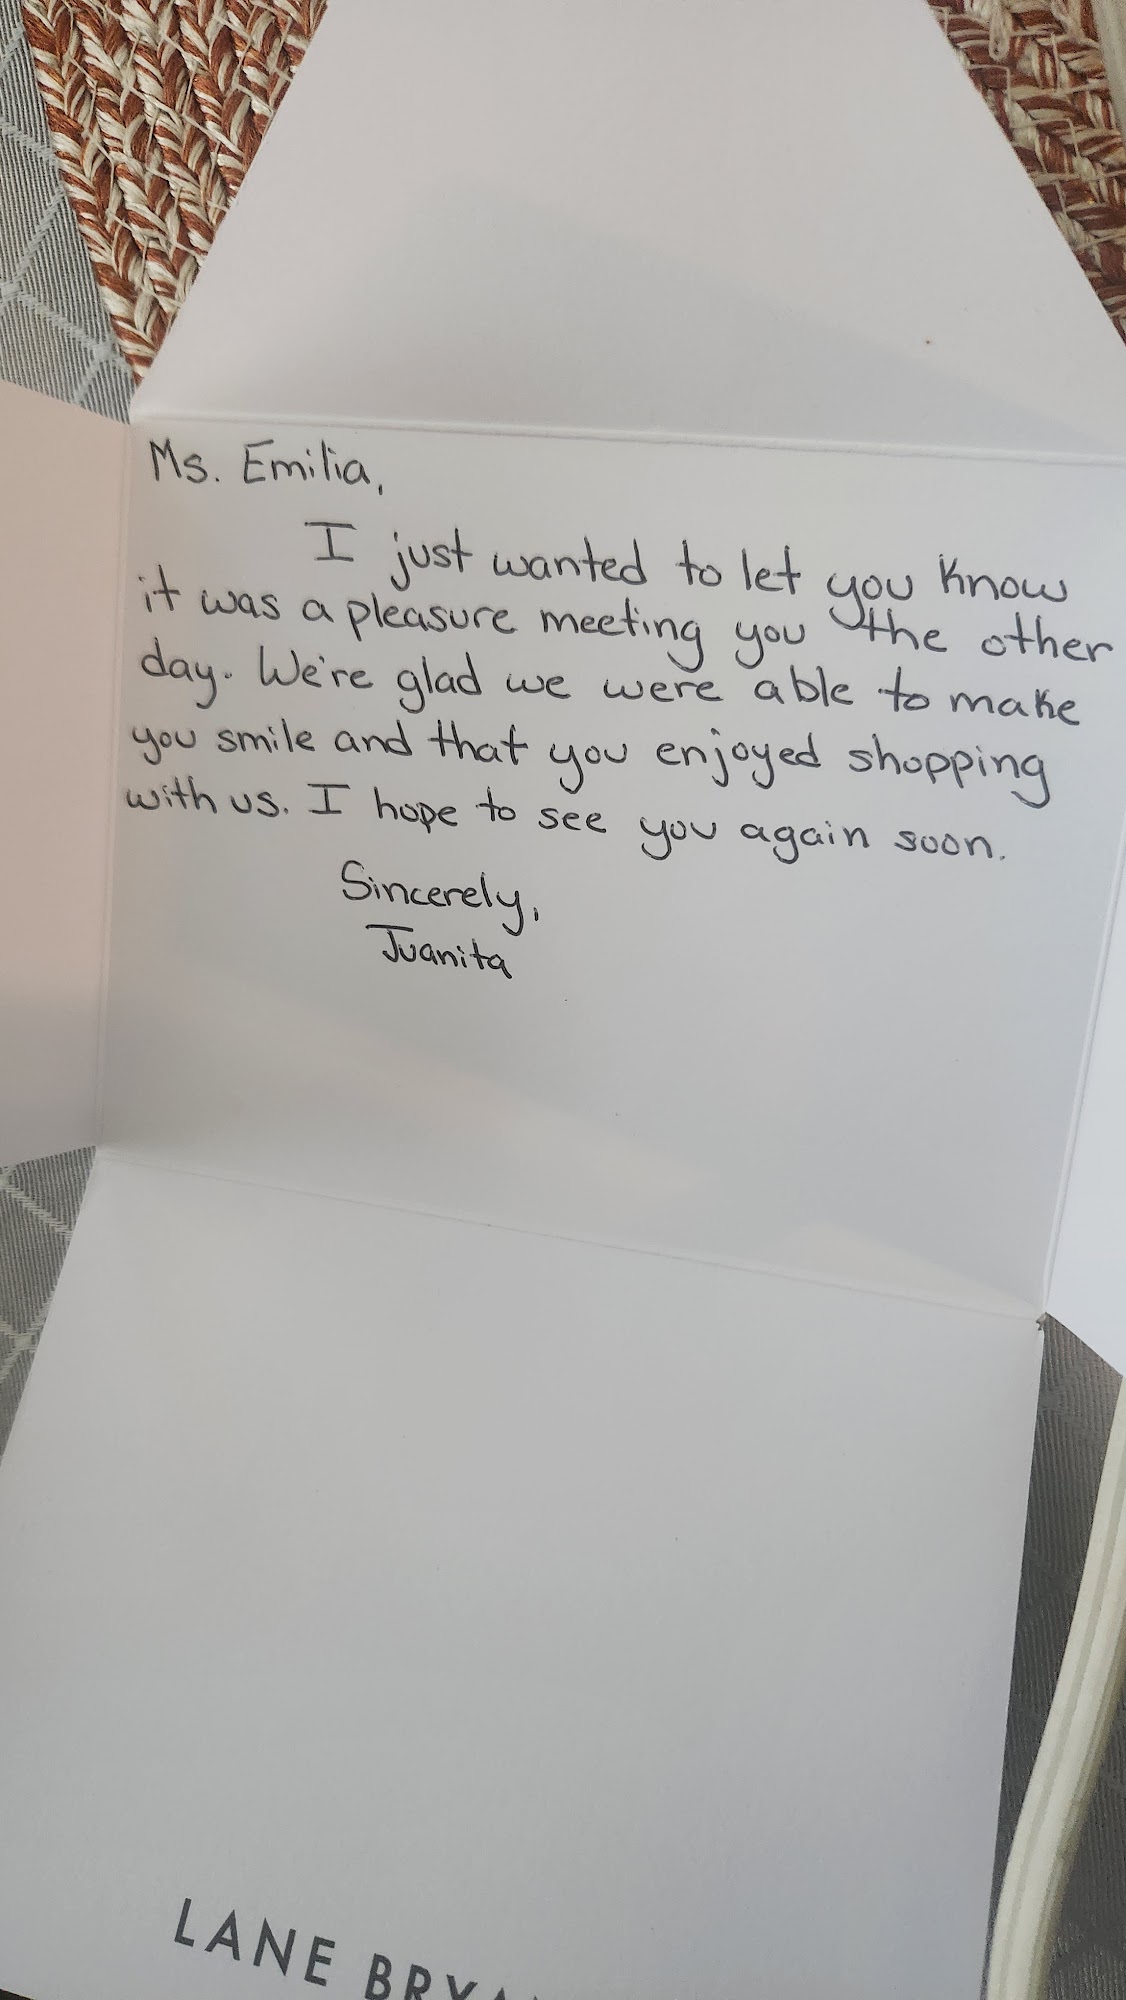 Ms. Emilia,
I just wanted to let you know
it was a pleasure meeting you the other
day. We're glad we were able to make
you smile and that you enjoyed shopping
with us. I hope to see you again soon.
Sincerely,
Juanita
LANE BRYA